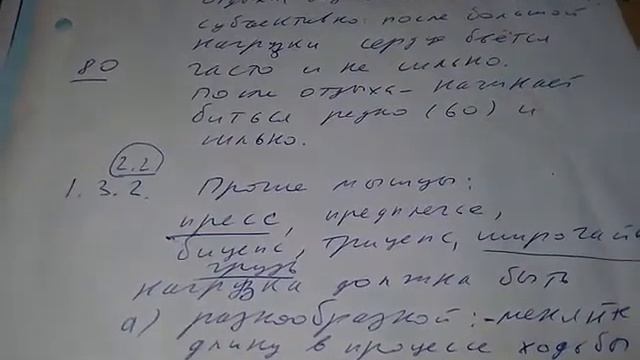 субъективно: после большой
нагрузки сердце бьётся
80 часто и не сильно.
После отдыха – начинает
биться редко (60) и
сильно.
2.2
1.3.2. Прочие мышцы:
пресс, предплечье,
бицепс, трицепс, широчай
грудь
нагрузка должна быть
а) разнообразной: – меняйте
длину в процессе ходьбы